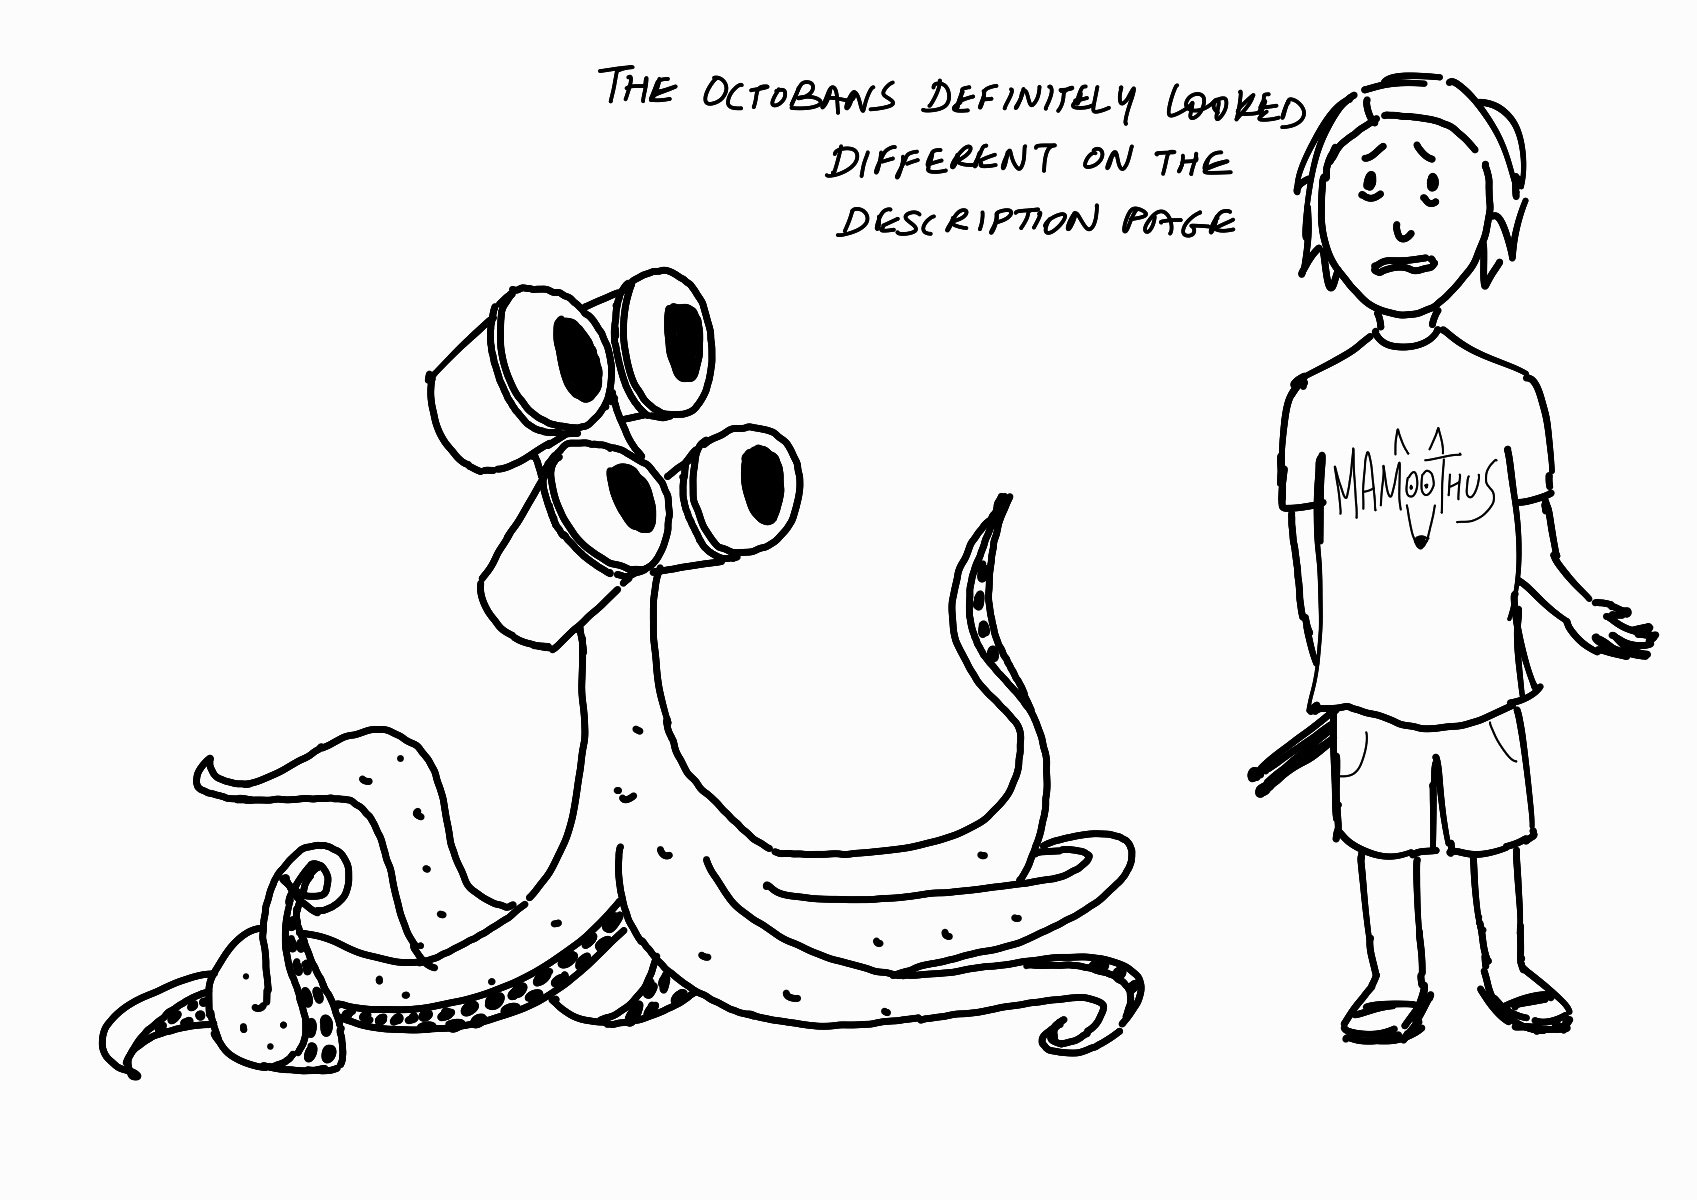 THE OCTOBANS DEFINITELY LOOKED
DIFFERENT ON THE
DESCRIPTION PAGE
MAMOOTHUS